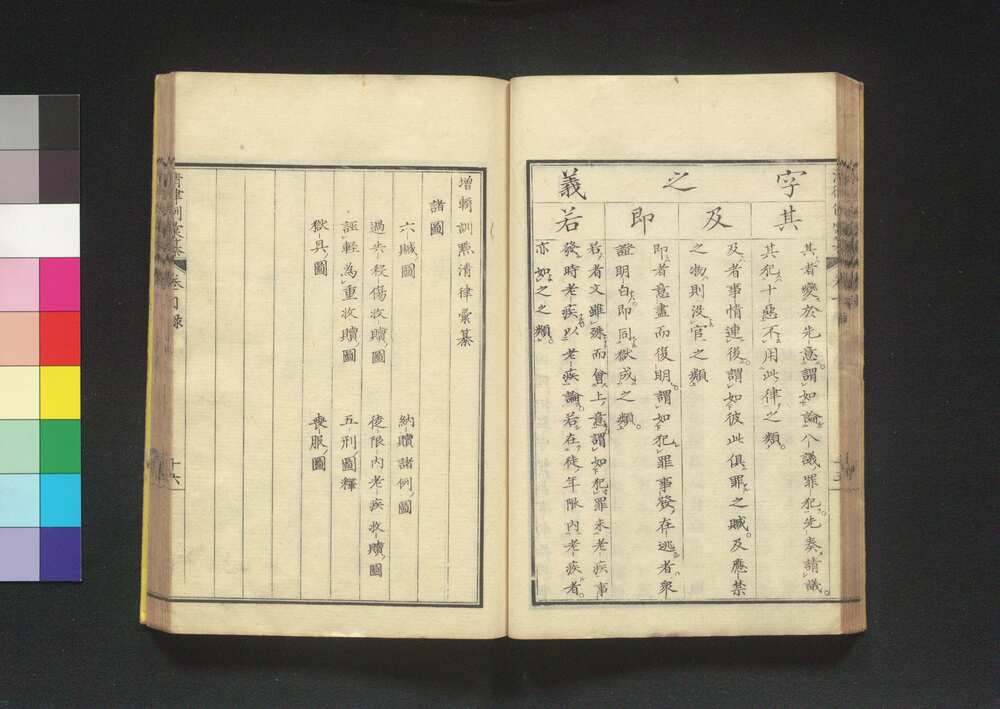 字之義
其
其者變於先意謂如論八議罪犯先奏請議
其犯十惡不用此律之類
及
及者事情連後謂如彼此俱罪之贓及應禁
之物則沒官之類
即
即者意盡而復明謂如犯罪事發在逃者衆
證明白即同獄成之類
若
若者文雖殊而會上意謂如犯罪未老疾事
發時老疾以老疾論若在徒年限內老疾者
亦如之之類
增輯訓點清律彙纂
諸圖
六贓圖
納贖諸例圖
過失殺傷收贖圖
徒限內老疾收贖圖
誣輕為重收贖圖
五刑圖釋
獄具圖
喪服圖
目錄
十六